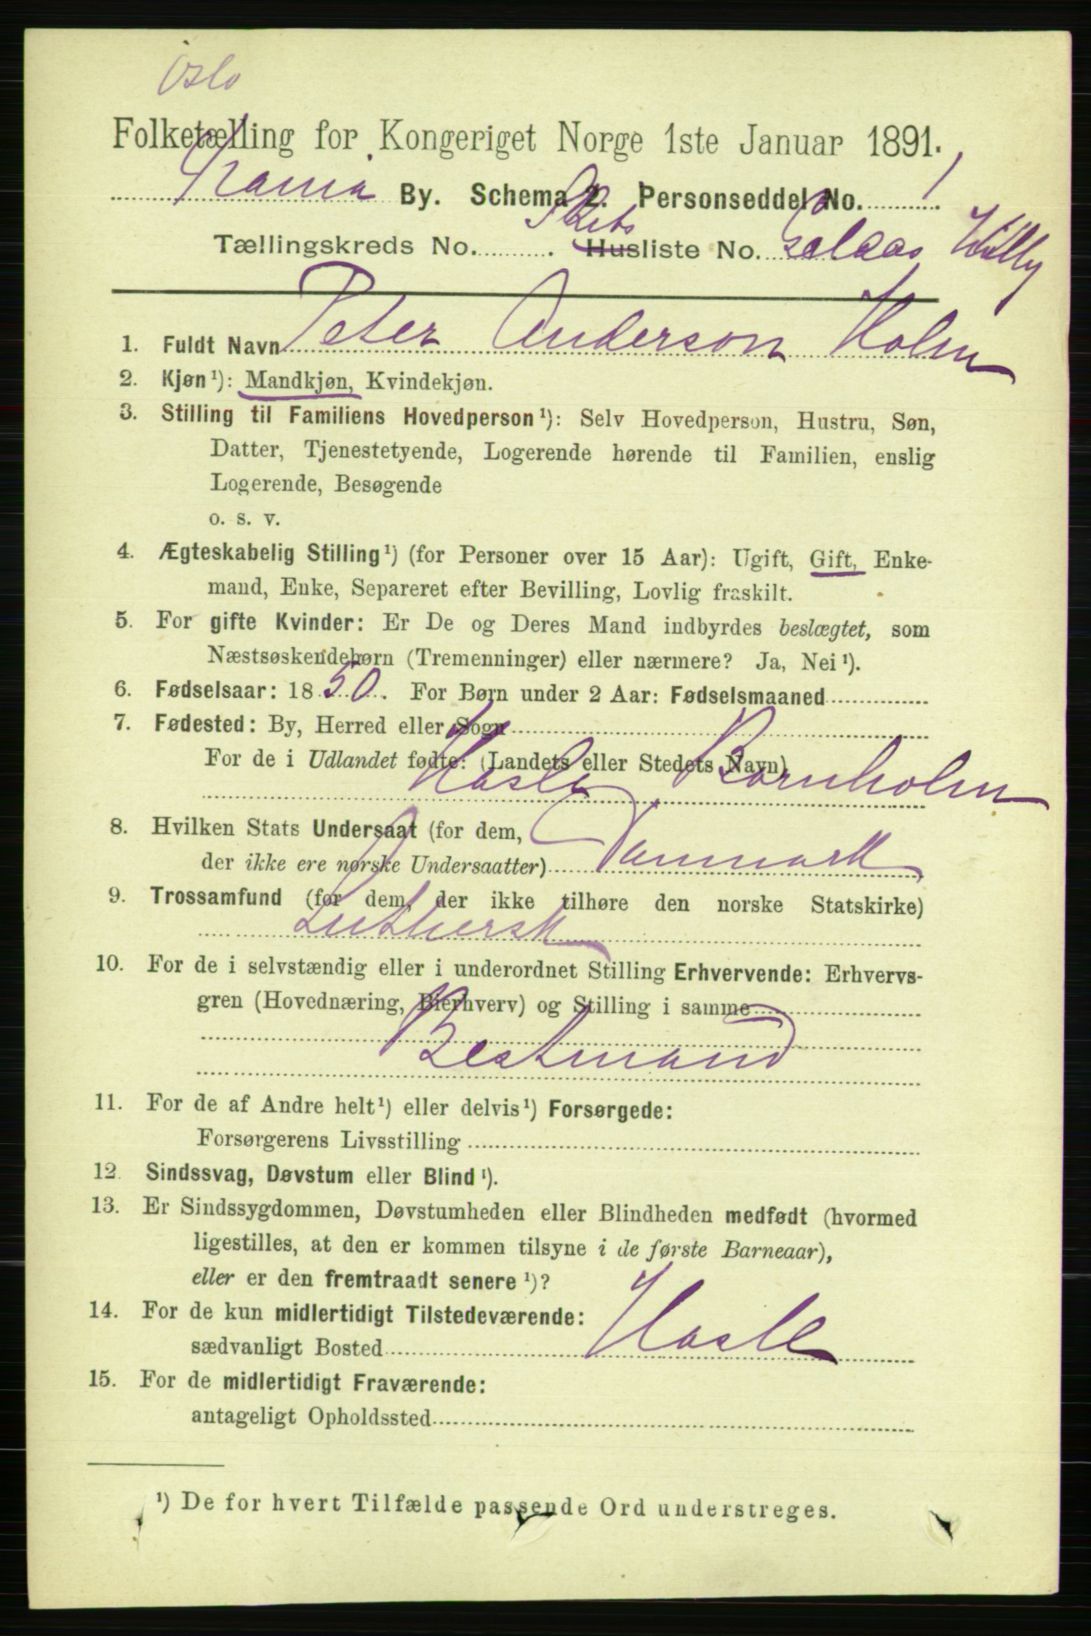 Oslo
Folketælling for Kongeriget Norge 1ste Januar 1891.
By. Schema 2. Personseddel No. 1
Skibs
Tællingskreds No. . Husliste No. Willy
1. Fuldt Navn Peter Anderson Holm
2. Kjøn ¹): Mandkjøn, Kvindekjøn.
3. Stilling til Familiens Hovedperson ¹): Selv Hovedperson, Hustru, Søn,
Datter, Tjenestetyende, Logerende hørende til Familien, enslig
Logerende, Besøgende
o. s. v.
4. Ægteskabelig Stilling ¹) (for Personer over 15 Aar): Ugift, Gift, Enke-
mand, Enke, Separeret efter Bevilling, Lovlig fraskilt.
5. For gifte Kvinder: Er De og Deres Mand indbyrdes beslægtet, som
Næstsøskendebørn (Tremenninger) eller nærmere? Ja, Nei ¹).
6. Fødselsaar: 1850. For Børn under 2 Aar: Fødselsmaaned
7. Fødested: By, Herred eller Sogn
For de i Udlandet fødte: (Landets eller Stedets Navn)
Hasle Bornholm
8. Hvilken Stats Undersaat (for dem,
der ikke ere norske Undersaatter) Danmark
9. Trossamfund (for dem, der ikke tilhøre den norske Statskirke)
Luthersk
10. For de i selvstændig eller i underordnet Stilling Erhvervende: Erhvervs-
gren (Hovednæring, Bierhverv) og Stilling i samme
Bestmand
11. For de af Andre helt ¹) eller delvis ¹) Forsørgede:
Forsørgerens Livsstilling
12. Sindssvag, Døvstum eller Blind ¹).
13. Er Sindssygdommen, Døvstumheden eller Blindheden medfødt (hvormed
ligestilles, at den er kommen tilsyne i de første Barneaar),
eller er den fremtraadt senere ¹)?
14. For de kun midlertidigt Tilstedeværende:
sædvanligt Bosted Hasle
15. For de midlertidigt Fraværende:
antageligt Opholdssted
¹) De for hvert Tilfælde passende Ord understreges.